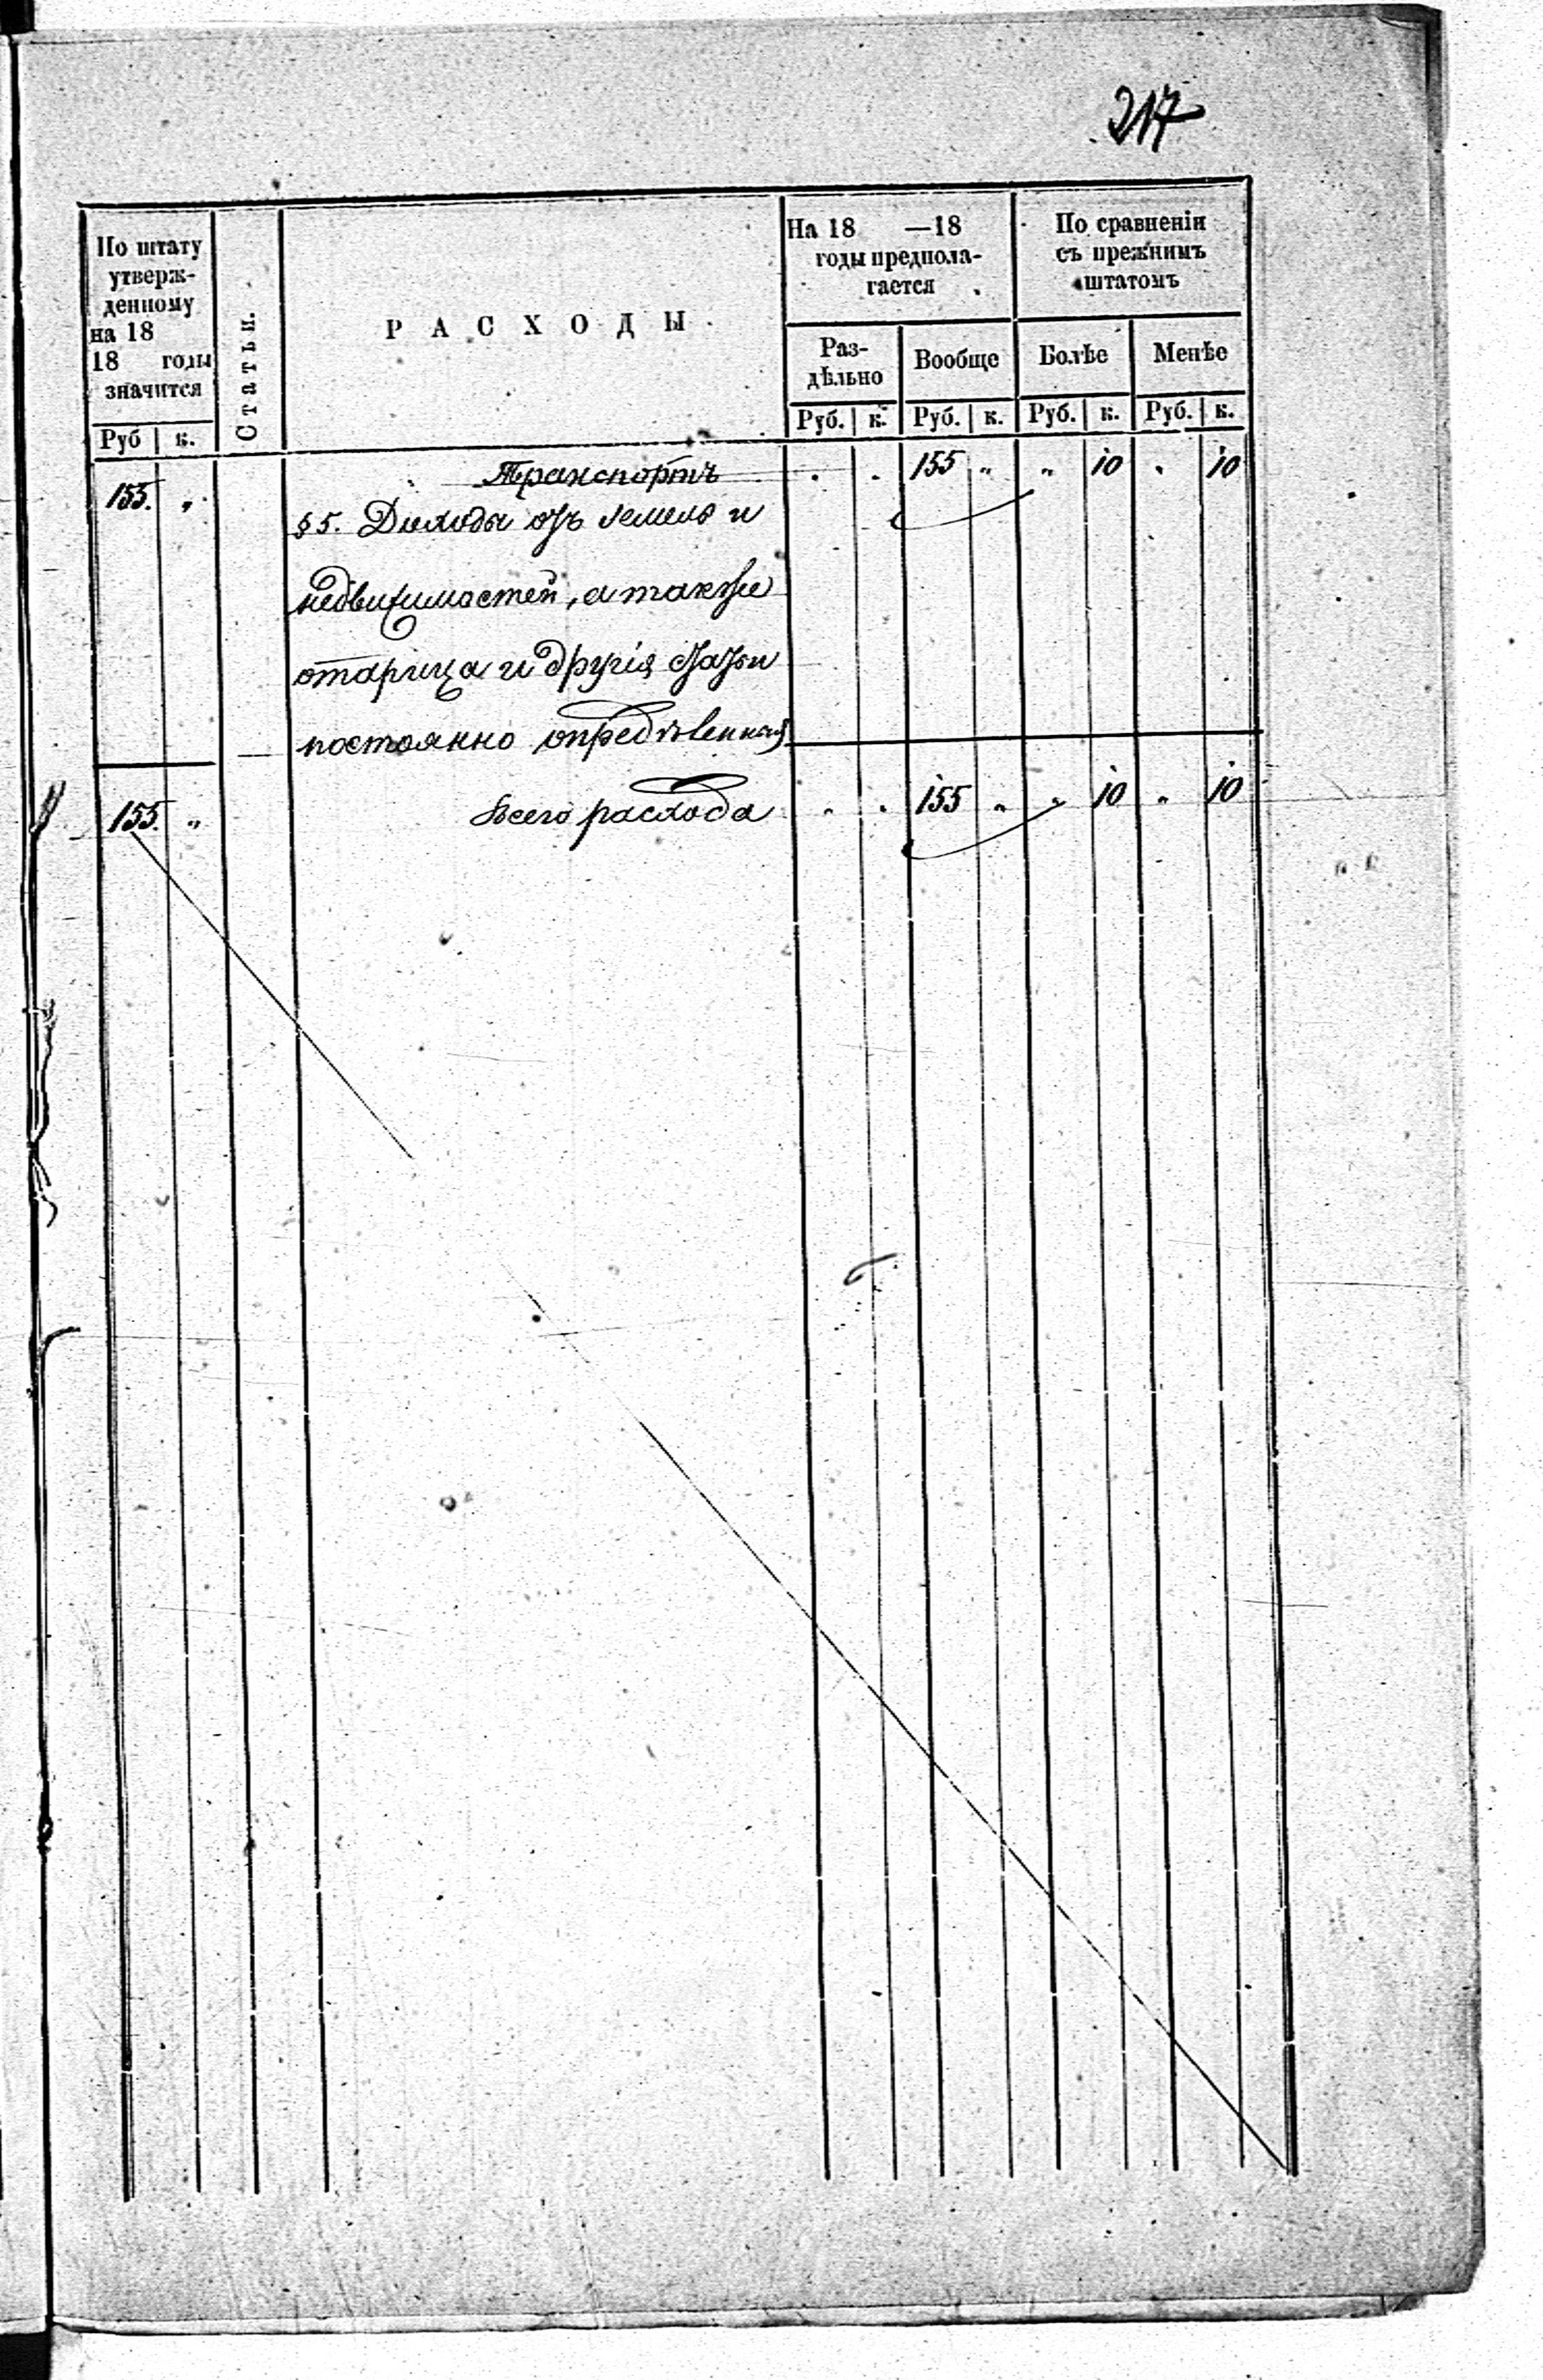 217
По штату
утверж-
денному
на 18
18 годы
значится
Статьи.
РАСХОДЫ.
На 18 —18
годы предпола-
гается
По сравненіи
съ прежнимъ
штатомъ
Раз-
дѣльно
Вообще
Болѣе
Менѣе
Руб к.
Руб. к. Руб. к. Руб. к. Руб. к.
155. „ Транспортъ . . 155 „ „ 10 „ 10
§ 5. Доходы отъ земель и
недвижимостей, а также
и другія статьи
постоянно
155. „ Всего расхода „ . 155 „ „ 10 „ 10